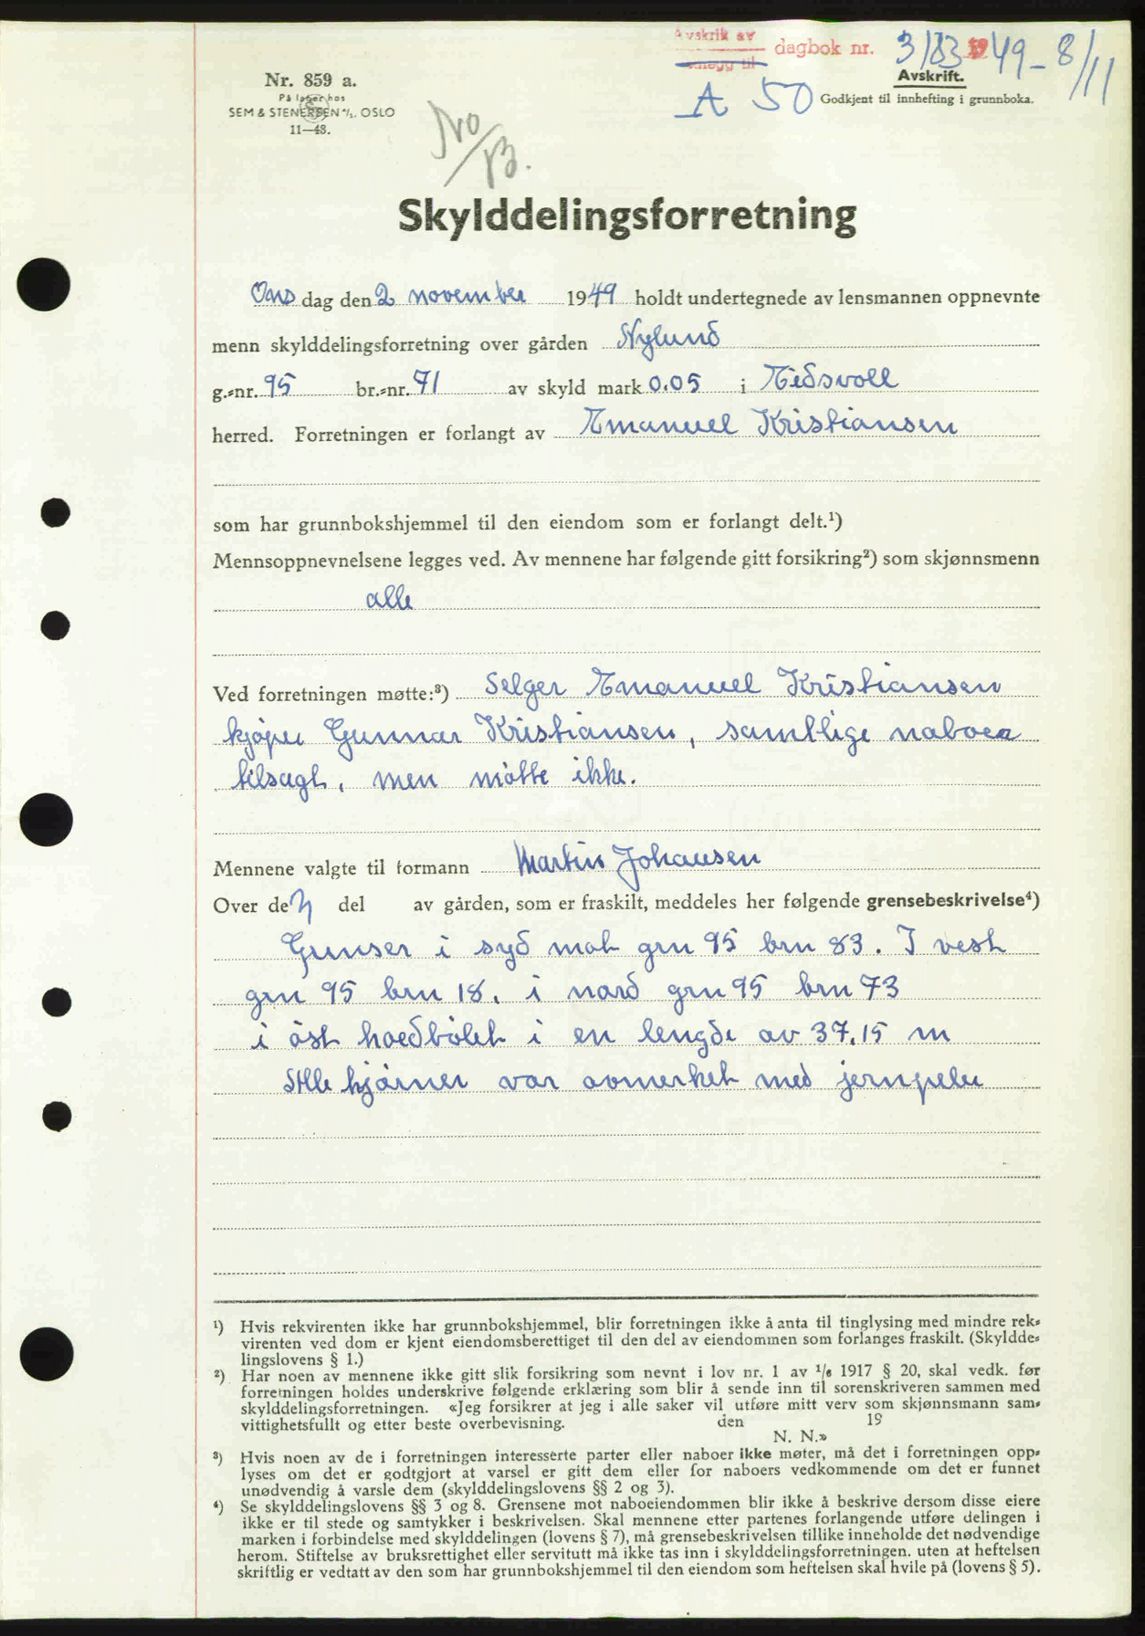 Avskrift av dagbok nr. 3183 1949 - 8/11
Avskrift.
A 50 Godkjent til innhefting i grunnboka.
Nr. 859 a.
På lager hos
SEM & STENERSEN A/S. OSLO
11—48.
Skylddelingsforretning
Ons dag den 2 november 1949 holdt undertegnede av lensmannen oppnevnte
menn skylddelingsforretning over gården Nylund
g.-nr. 95 br.-nr. 71 av skyld mark 0.05 i Eidsvoll
herred. Forretningen er forlangt av Emanuel Kristiansen
som har grunnbokshjemmel til den eiendom som er forlangt delt.¹)
Mennsoppnevnelsene legges ved. Av mennene har følgende gitt forsikring²) som skjønnsmenn
alle
Ved forretningen møtte:³) Selger Emanuel Kristiansen
kjøper Gunnar Kristiansen, samtlige naboer
tilsagt, men møtte ikke.
Mennene valgte til formann Martin Johansen
Over den del av gården, som er fraskilt, meddeles her følgende grensebeskrivelse⁴)
Grenser i syd mot grn 95 brn 83. I vest
grn 95 brn 18. i nord grn 95 brn 73
i øst hovedbølet i en lengde av 37.15 m
Alle hjørner var avmerket med jernpeler
¹) Hvis rekvirenten ikke har grunnbokshjemmel, blir forretningen ikke å anta til tinglysing med mindre rek-
virenten ved dom er kjent eiendomsberettiget til den del av eiendommen som forlanges fraskilt. (Skyldde-
lingslovens § 1.)
²) Har noen av mennene ikke gitt slik forsikring som nevnt i lov nr. 1 av 1/6 1917 § 20, skal vedk. før
forretningen holdes underskrive følgende erklæring som blir å sende inn til sorenskriveren sammen med
skylddelingsforretningen. «Jeg forsikrer at jeg i alle saker vil utføre mitt verv som skjønnsmann sam-
vittighetsfullt og etter beste overbevisning. den 19
N. N.»
³) Hvis noen av de i forretningen interesserte parter eller naboer ikke møter, må det i forretningen opp-
lyses om det er godtgjort at varsel er gitt dem eller for naboers vedkommende om det er funnet
unødvendig å varsle dem (skylddelingslovens §§ 2 og 3).
⁴) Se skylddelingslovens §§ 3 og 8. Grensene mot naboeiendommen blir ikke å beskrive dersom disse eiere
ikke er til stede og samtykker i beskrivelsen. Skal mennene etter partenes forlangende utføre delingen i
marken i forbindelse med skylddelingen (lovens § 7), må grensebeskrivelsen tillike inneholde det nødvendige
herom. Stiftelse av bruksrettighet eller servitutt må ikke tas inn i skylddelingsforretningen. uten at heftelsen
skriftlig er vedtatt av den som har grunnbokshjemmel til den eiendom som heftelsen skal hvile på (lovens § 5).